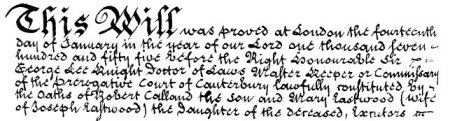 This Will was proved at London the fourteenth
day of January in the year of our Lord one thousand seven -
hundred and fifty five before the Right Honourable Sir
George Lee Knight Doctor of Laws Master Keeper or Commissary
of the Prerogative Court of Canterbury lawfully constituted by -
the Oaths of Robert Calland the Son and Mary Eastwood (wife
of Joseph Eastwood) the Daughter of the deceased, Exectors